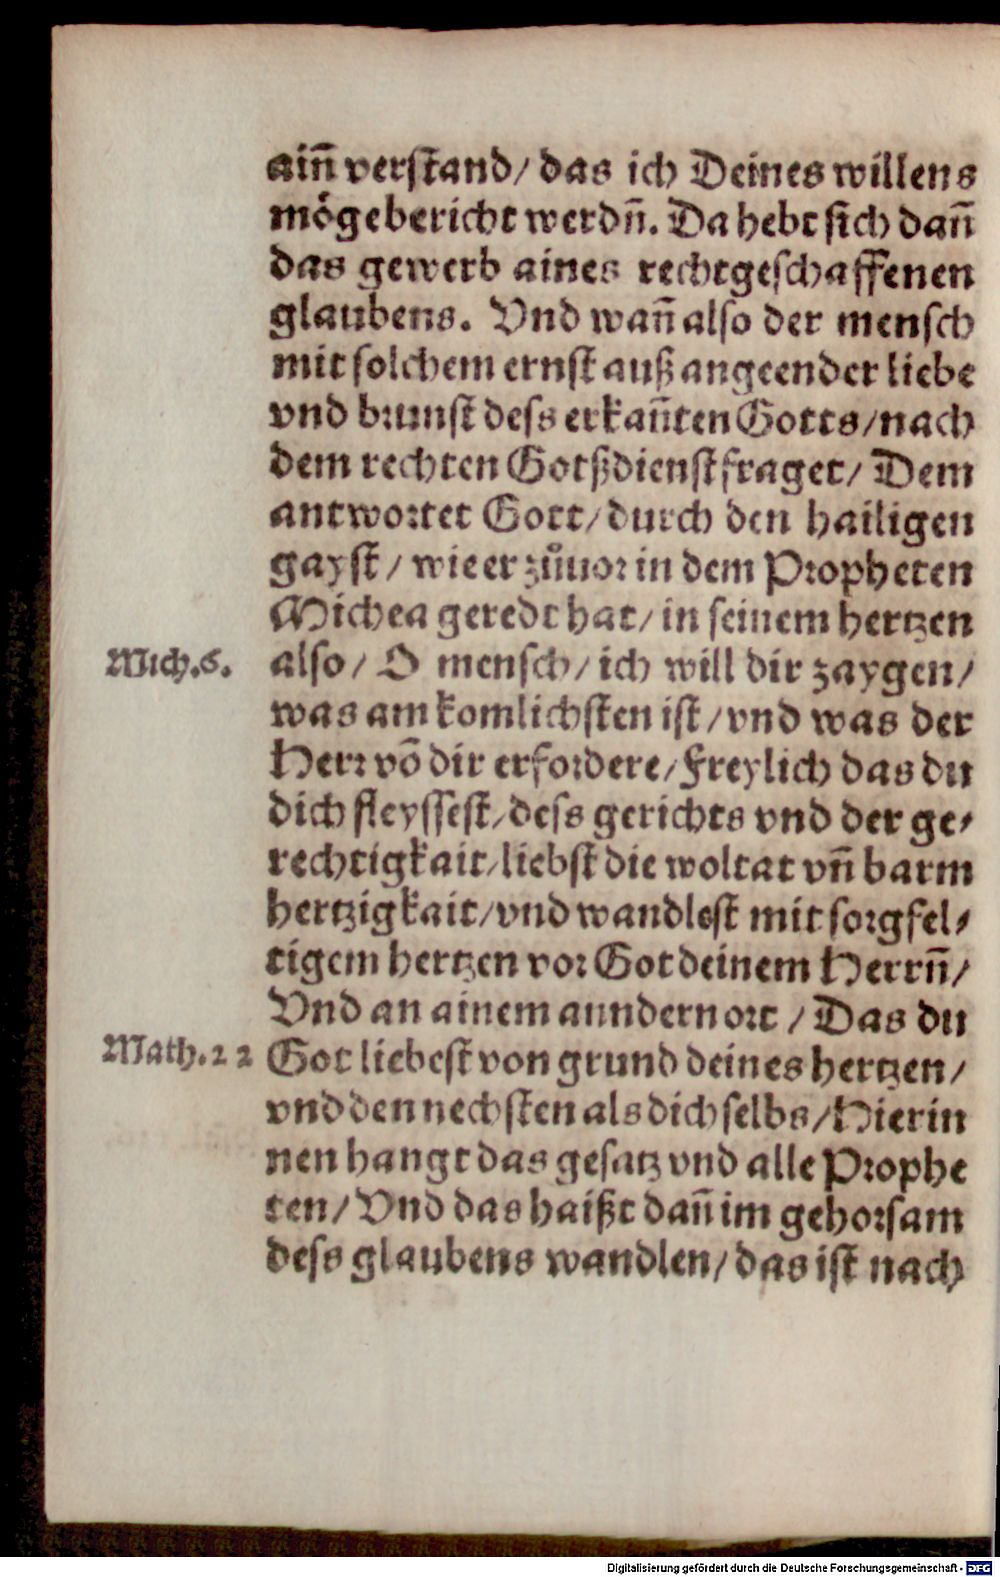 ain̄ verstand/ das ich Deines willens
mögebericht werdn̄. Da hebt sich dan̄
das gewerb aines rechtgeschaffenen
glaubens. Vnd wan̄ also der mensch
mit solchem ernst auß angeender liebe
vnd brunst dess erkan̄ten Gotts/nach
dem rechten Gotßdienst fraget/ Dem
antwortet Gott/durch den hailigen
gayst/ wie er zůuor in dem Propheten
Michea geredt hat/ in seinem hertzen
Mich.6. also/ O mensch/ich will dir zaygen/
was am komlichsten ist/vnd was der
Herr võ dir erfordere/Freylich das du
dich fleyssest/dess gerichts vnd der ge⸗
rechtigkait/liebst die woltat vn̄ barm
hertzigkait/vnd wandlest mit sorgfel⸗
tigem hertzen vor Got deinem Herrn̄/
Vnd an ainem anndern ort/Das du
Math.22 Got liebest von grund deines hertzen/
vnd den nechsten als dich selbs/Hierin
nen hangt das gesatz vnd alle Prophe
ten/Vnd das haißt dan̄ im gehorsam
dess glaubens wandlen/das ist nach
Digitalisierung gefördert durch die Deutsche Forschungsgemeinschaft - DFG